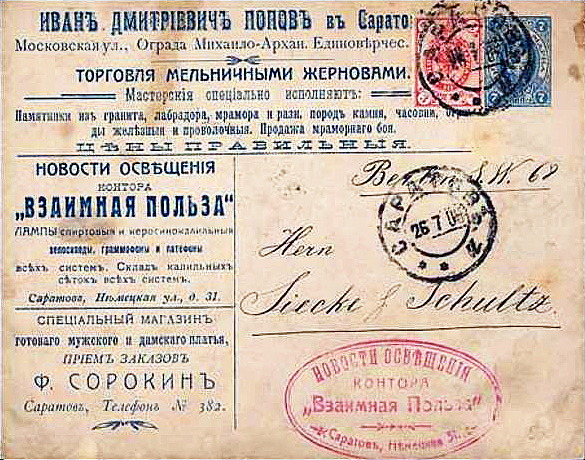 ИВАНЪ ДМИТРІЕВИЧЪ ПОПОВЪ въ Сарато
Московская ул., Ограда Михаило-Архан. Единовѣрчес.
ТОРГОВЛЯ МЕЛЬНИЧНЫМИ ЖЕРНОВАМИ.
Мастерскія спеціально исполняютъ:
Памятники изъ гранита, лабрадора, мрамора и разн. породъ камня, часовни,
ды желѣзныя и проволочныя. Продажа мраморнаго боя.
ЦѢНЫ ПРАВИЛЬНЫЯ.
7
7
НОВОСТИ ОСВѢЩЕНІЯ
КОНТОРА
„ВЗАИМНАЯ ПОЛЬЗА"
ЛАМПЫ спиртовыя и керосинокалильныя
велосипеды, граммофоны и патефоны
всѣхъ системъ. Складъ калильныхъ
сѣтокъ всѣхъ системъ.
Саратовъ, Нѣмецкая ул., д. 31.
СПЕЦІАЛЬНЫЙ МАГАЗИНЪ
готоваго мужского и дамскаго платья,
ПРІЕМЪ ЗАКАЗОВЪ
Ф. СОРОКИНЪ
Саратовъ, Телефонъ № 382.
Berlin S.W. 62
САРАТОВЪ
26.7
Herrn
Siecke & Schultz.
НОВОСТИ ОСВѢЩЕНІЯ
КОНТОРА
„Взаимная Польза"
Саратовъ, Нѣмецкая 31.